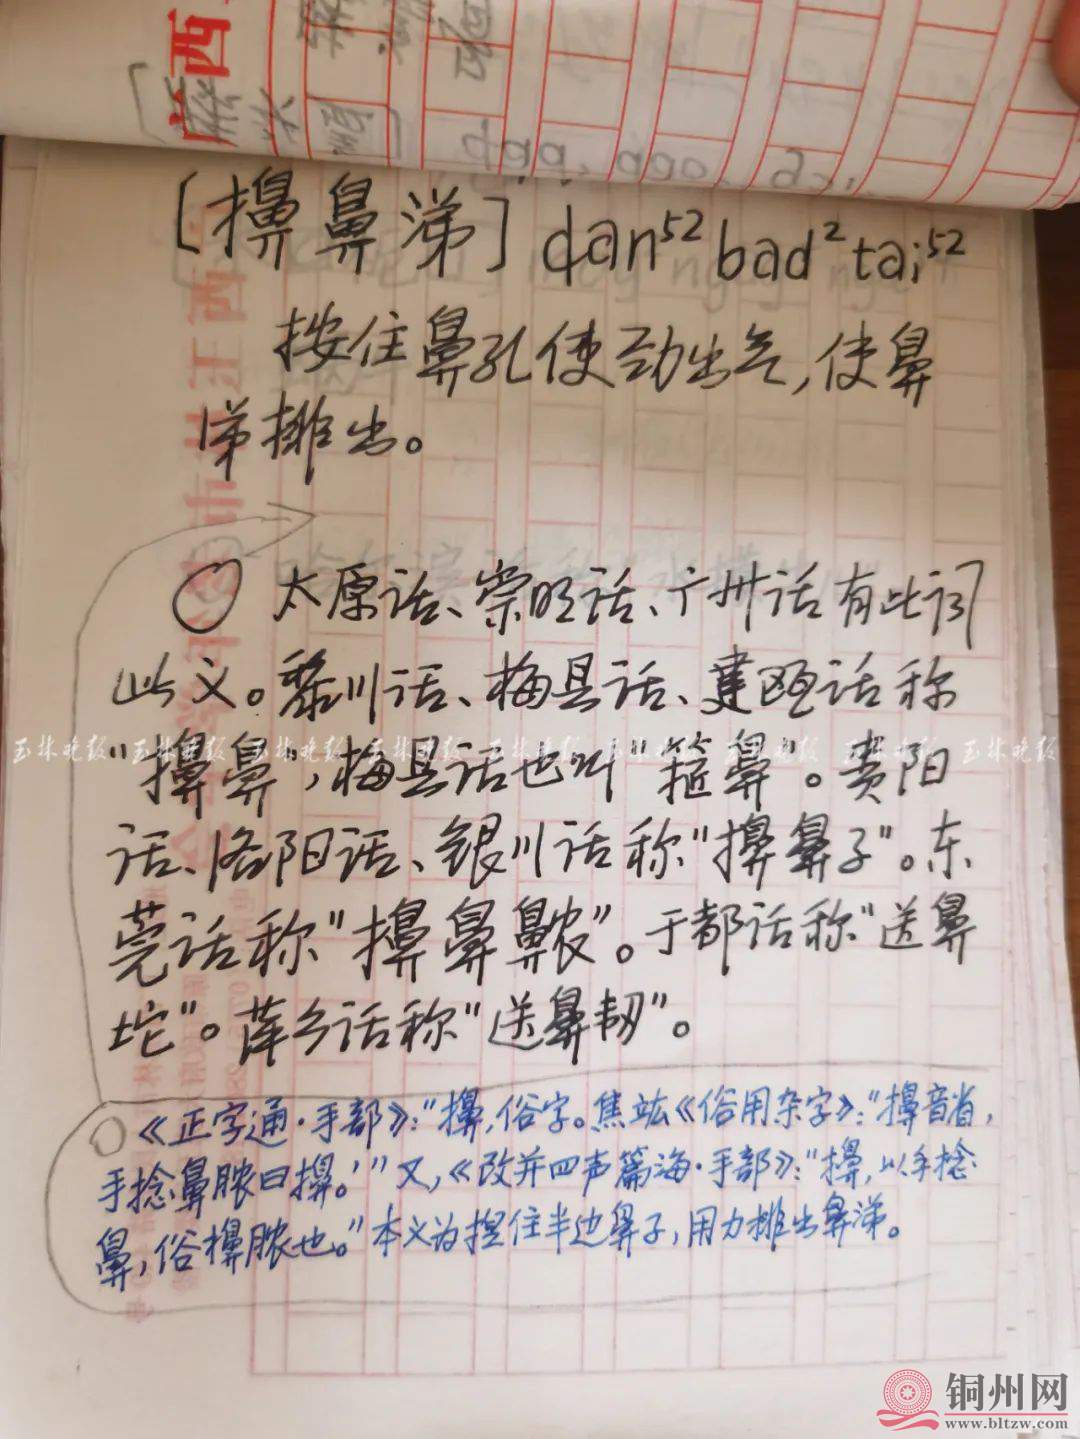 西
[擤鼻涕] dan⁵² bad² tai⁵²
按住鼻孔使劲出气,使鼻
涕排出。
○ 太原话、崇明话、广州话有此词
此义。黎川话、梅县话、建瓯话称
"擤鼻",梅县话也叫"箍鼻"。贵阳
话、洛阳话、银川话称"擤鼻子"。东
莞话称"擤鼻齈"。于都话称"送鼻
坨"。萍乡话称"送鼻㓞"。
○《正字通·手部》:"擤,俗字。焦竑《俗用杂字》:'擤音省,
手捻鼻脓曰擤。'"又,《改并四声篇海·手部》:"擤,以手捻
鼻,俗擤脓也。"本义为捏住半边鼻子,用力排出鼻涕。
玉林晚报 玉林晚报 玉林晚报 玉林晚报 玉林晚报 玉林晚报 玉林晚报 玉林晚报 玉林晚报
铜州网
www.bltzw.com